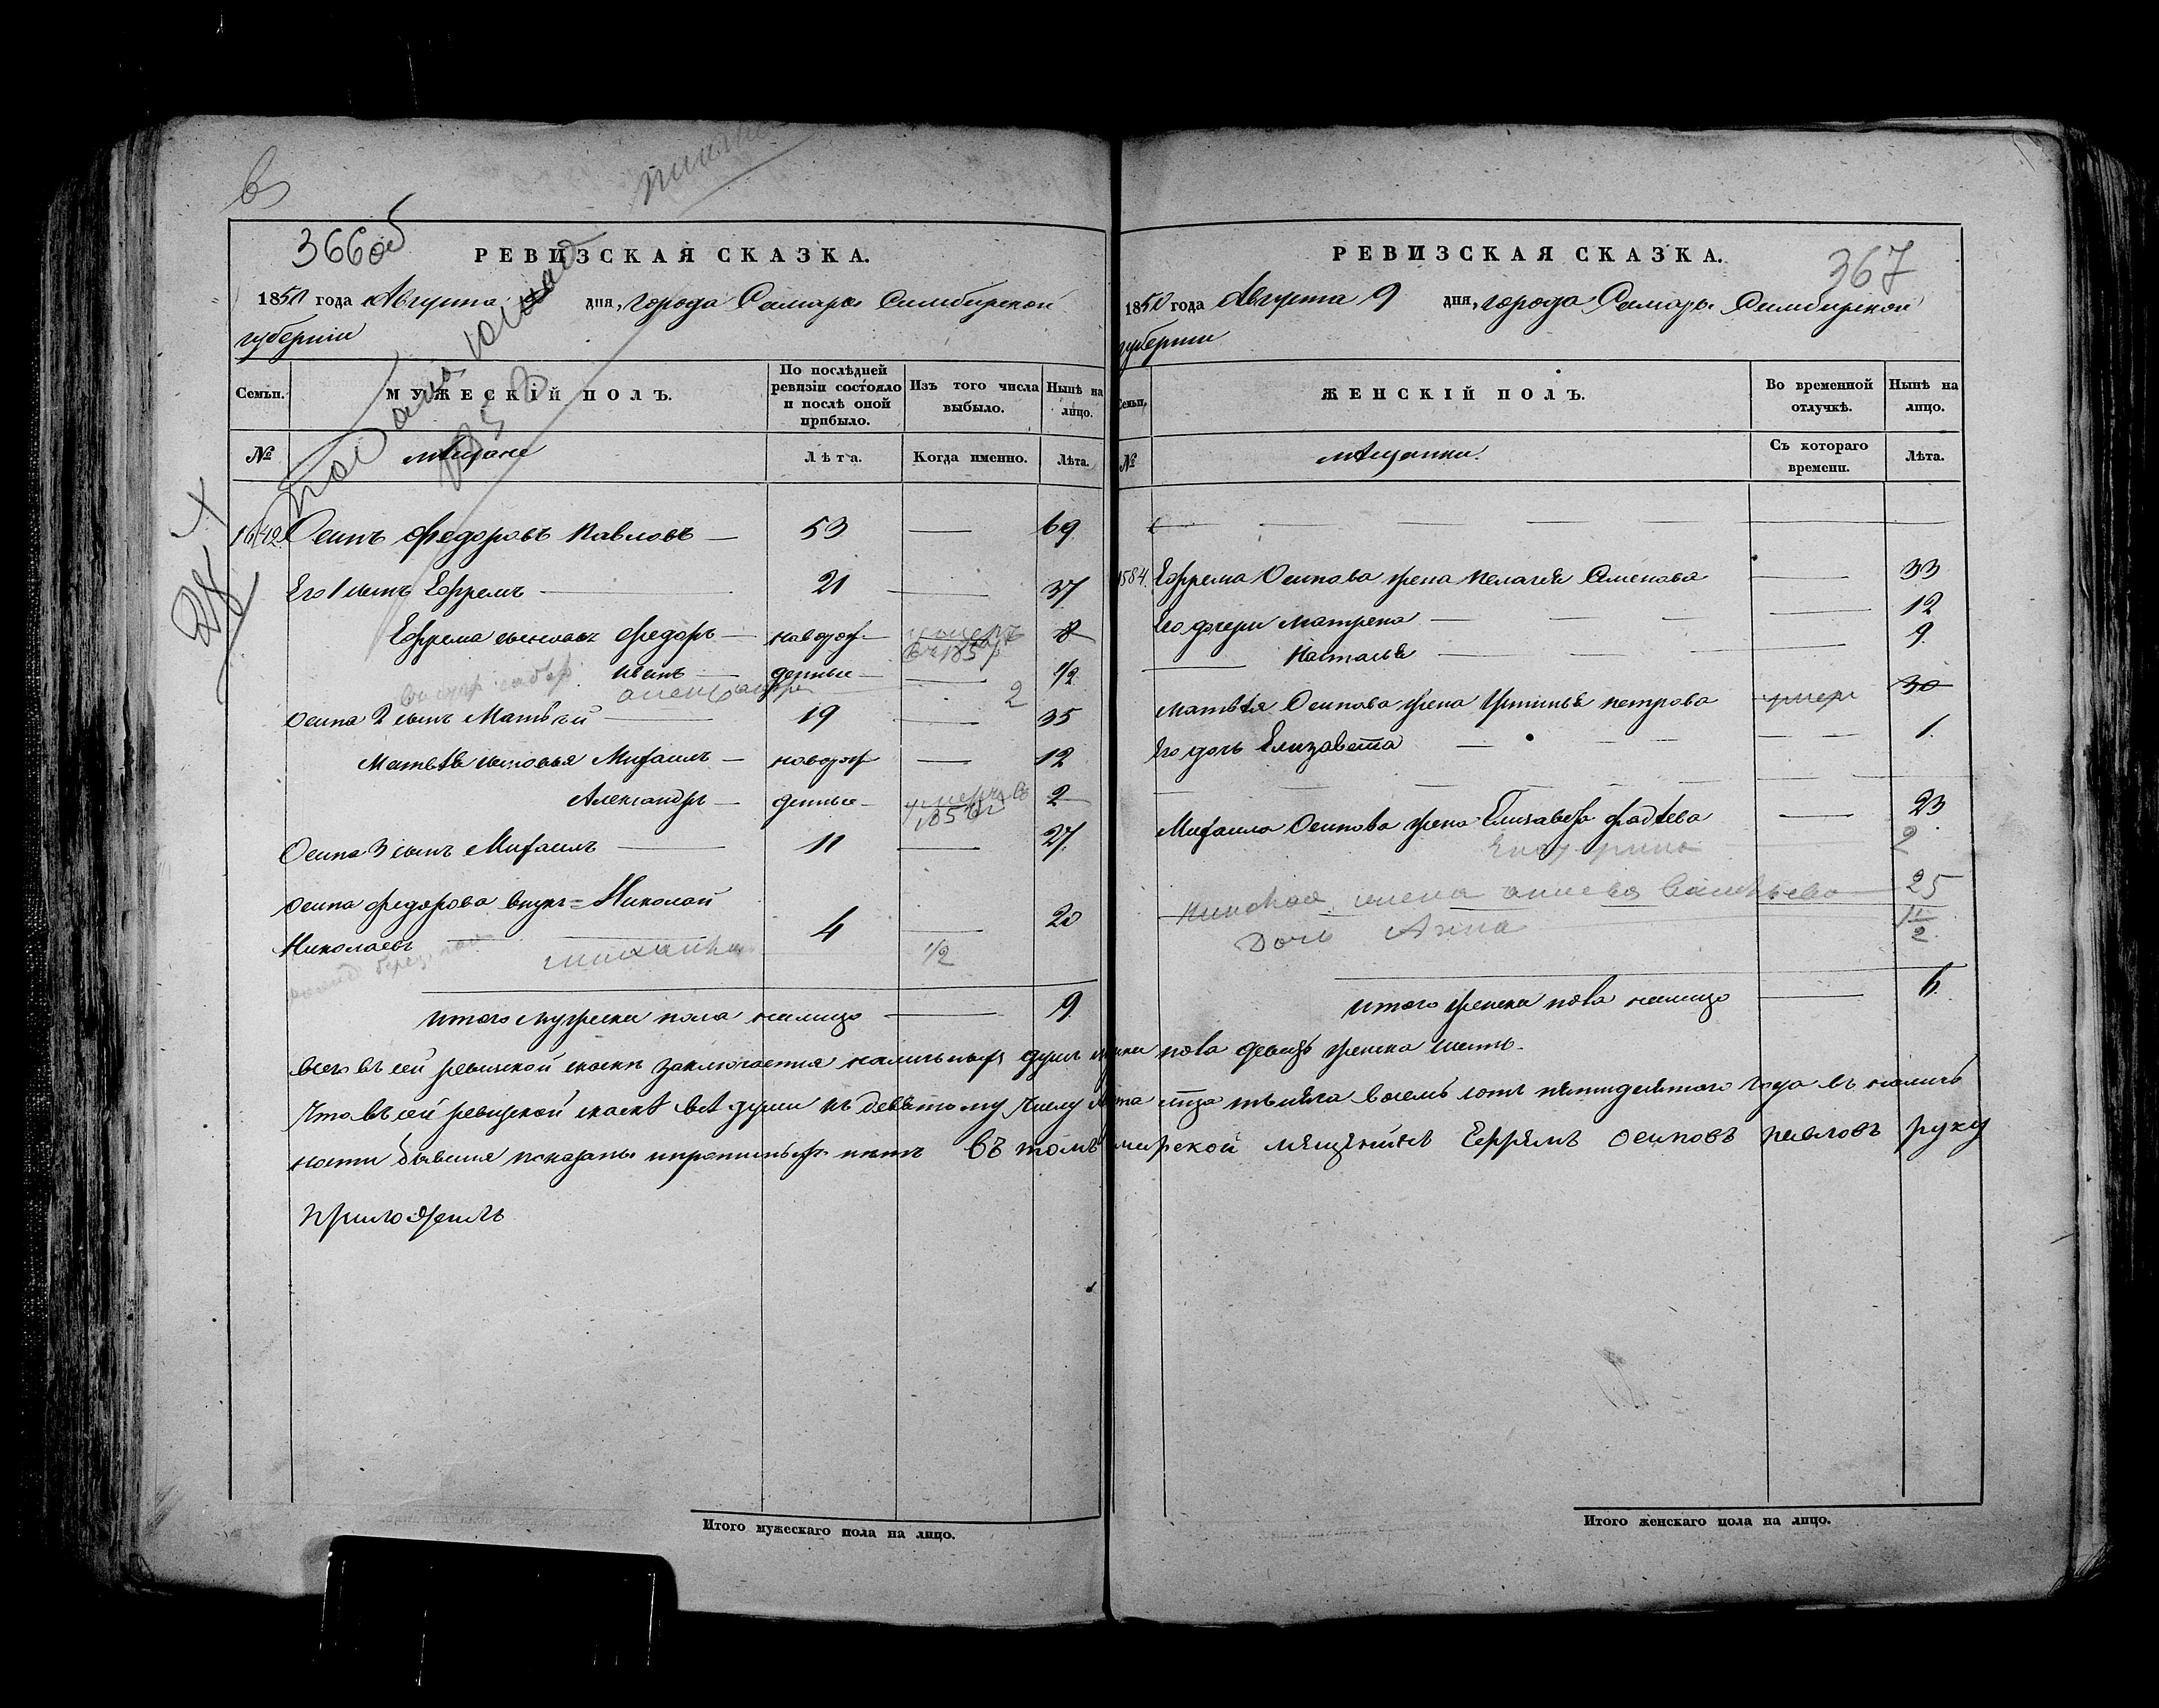 366об
РЕВИЗСКАЯ СКАЗКА.
1850 года Августа дня, города Самары Симбирской
губернiи
Семьи. МУЖЕСКIЙ ПОЛЪ. По послѣдней ревизiи состояло и послѣ оной прибыло. Изъ того числа выбыло. Нынѣ на лицо.
№ мѣщане Лѣта. Когда именно. Лѣта.
28
Осипъ Федоровъ Павловъ — 53 — 69
Его 1 сынъ Ефремъ — 21 — 37
Ефрема сыновья Федоръ — новорож 8
Иванъ — денные — 1/2
Александръ 2
Осипа 2 сынъ Матвѣй — 19 — 35
Матвѣя сыновья Михаилъ — новорож — 12
Александръ — денные — умеръ въ 2
Осипа 3 сынъ Михаилъ — 11 — 27
Осипа Федорова внукъ = Николай
Николаевъ — 4 — 20
1/2
Итого мужеска пола налицо — 9
367
РЕВИЗСКАЯ СКАЗКА.
1850 года Августа 9 дня, города Самары Симбирской
губернiи
Семьи. ЖЕНСКIЙ ПОЛЪ. Во временной отлучкѣ. Нынѣ на лицо.
№ мѣщанки. Съ котораго времени. Лѣта.
1584. Ефрема Осипова жена Пелагея Семенова — 33
Его дочери Матрена — 12
Наталья — 9
Матвѣя Осипова жена Устинья Петрова умер 30
Его дочь Елизавета — 1.
Михаила Осипова жена Елизавета Фадѣева — 23
Екатерина 2
жена Васильева 25
Дочь Анна 1 1/2
Итого женска пола налицо — 6.
Всего въ сей ревиской скаскѣ заключается наличныхъ душъ мужска пола девять женска шесть.
Что въ сей ревиской скаскѣ всѣ души къ девятому числу Августа тысяча восемь сотъ пятидесятого года въ налич
ности бывшия показаны и прописныхъ нѣтъ Въ томъ самарской мѣщенинъ Ефремъ Осиповъ Павловъ руку
приложилъ
Итого мужескаго пола на лицо.
Итого женскаго пола на лицо.